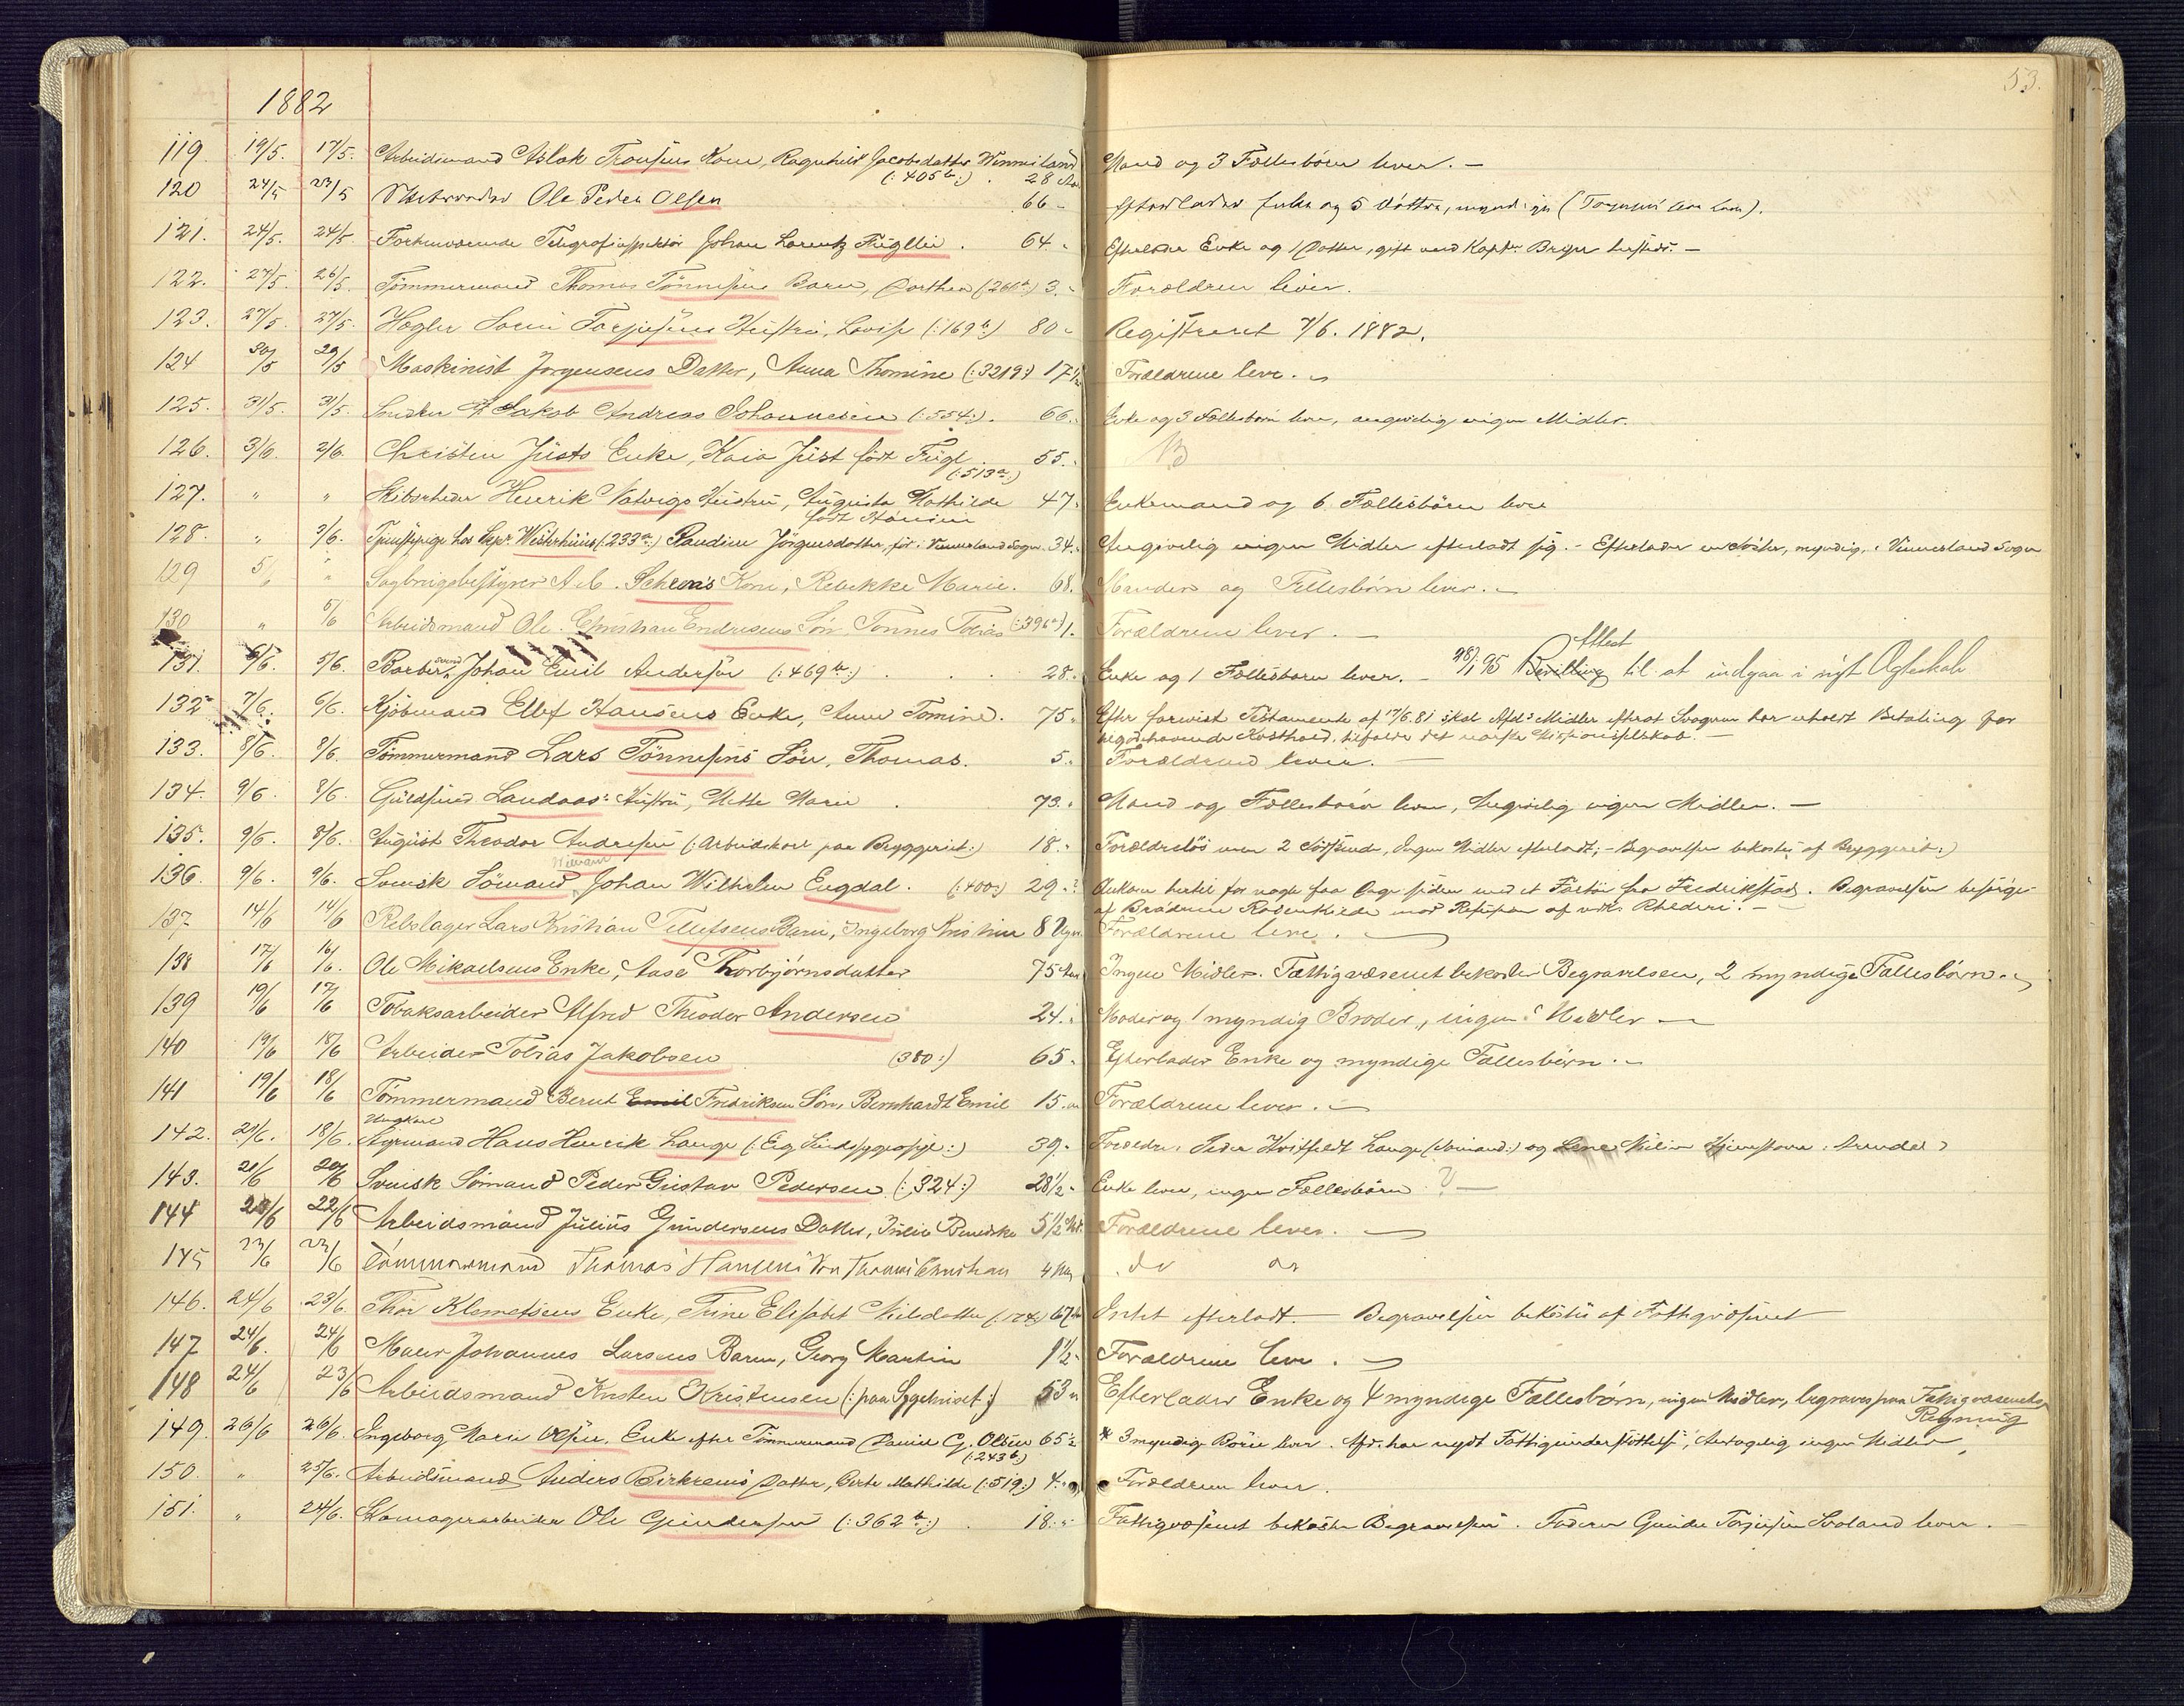 53.
1882
119. 19/5. 17/5. Arbeidsmand Aslak Tronsens Kone, Ragnhild Jacobsdatter Vennesland Mand og 3 Fællesbörn lever. —
(: 405 b:) . 28 Aar
120 24/5 23/5 Ole Peder Olsen 66 - Efterlader Enke og 5 Döttre, myndige
121. 24/5. 24/5. Forhenværende Telegrafinspektör Johan Lorentz Fugllie . 64. - Efterlader Enke og 1 Datter, gift med Kapt. —
122. 27/5. 26/5. Tömmermand Thomas Tönnesens Barn, Dorthea 3. - Forældrene lever.
123. 27/5. 27/5. Torjusens Hustru, Lovise (: 169 b:) 80 - Registreret 7/6. 1882.
124 30/5 29/5 Maskinist Jorgensens Datter, Anna Thomine (: 321 9:) 17 1/2 Forældrene leve.
125. 31/5. 31/5. Snedker Jakob Andreas Johannesen (: 554:). 66. Enke og 3 Fællesbörn lever, angivelig ingen Midler.
126. 3/6. 2/6. Christen Justs Enke, Kaia Just födt Fugl . 55. -
(: 513 a:)
127. " " Skibsrheder Henrik Natvigs Hustru, Augusta Mathilde 47. Enkemand og 6 Fællesbörn lever
födt Hansen
128. " 3/6. Tjenestepige hos Westerhuus (: 233 a:) Randine Jörgensdatter, för i Vennesland Sogn. 34. Angivelig ingen Midler efterladt sig. - Efterlader en Söster, myndig, i Vennesland Sogn
129 5/6 " Sagbrugsbestyrer A. C. Kone, Rebekke Marie. 68. Manden og Fællesbörn lever. —
130 " 5/6 Arbeidsmand Ole Christian Endresens Sön Tönnes Tobias (: 396 a) 1. Forældrene lever. —
Attest
131. 6/6. 5/6. Barber svend Johan Emil Andersen (: 469 b:) . . . 28. - Enke og 1 Fællesbarn lever. — 28/1 95 Bevilling til at indgaa i nyt Ægteskab
132 7/6. 6/6. Kjöbmand Ellef Hansens Enke, Anne Tomine. 75. Efter forevist Testamente af 17/6. 81 skal Afd. Midler efterat Svogeren har erholdt Betaling for
Kosthold, tilfalde det norske Missionsselskab. —
133. 8/6. 8/6. Tömmermand Lars Tönnesens Sön, Thomas. 5. Forældrene lever. —
134. 9/6. 8/6. Guldsmed Landaas' Hustru, Mette Marie . 73. Mand og Fællesbörn lever, Angivelig ingen Midler. —
135. 9/6. 8/6. August Theodor Andresen (: Arbeidskarl paa Bryggeriet:) 18. Forældrelös men 2 Söskende, Ingen Midler efterladt; - Begravelsen bekostes af Bryggeriet:)
136. 9/6. 9/6. Svensk Sömand Johan Wilhelm Engdal. (: 400:) 29. - ? Ankom hertil for nogle faa Dage siden med et Fartöi fra Fredrikstad. Begravelsen besörges
af Brödrene mod Refusion af vdk. Rhederi. —
137 14/6 14/6 Rebslager Lars Kristian Tellefsens Barn, Ingeborg Kristine 8 Uger Forældrene leve.
138 17/6 16/6. Ole Mikaelsens Enke, Aase Thorbjörnsdatter 75 Aar Ingen Midler. Fattigvæsenet bekoster Begravelsen, 2 myndige Fællesbörn.
139 19/6 17/6 Tobaksarbeider Alfred Theodor Andersen 24. Moder og 1 myndig Broder, ingen Midler —
140 19/6 18/6 Arbeider Tobias Jakobsen (380:) 65. Efterlader Enke og myndige Fællesbörn. —
141 19/6 18/6 Tömmermand Bernt Emil Fredriksens Sön, Bernhardt Emil 15. Forældrene lever. —
Ungkarl
142. 21/6. 18/6. Styrmand Hans Henrik Lange 39. Forældre: Peder Hvitfeldt Lange (Sömand:) og Lene
143. 21/6 20/6 Svensk Sömand Peder Gustav Pedersen (: 324:) 28 1/2 Enke lever, ingen Fællesbörn ? —
144 23/6 22/6 Arbeidsmand Julius Gundersens Datter, Julie 5 1/2 Forældrene lever. —
145 23/6 23/6 Tömmermand Thomas Hansens Sön Thomas Christian 4 do do
146. 24/6 23/6. Thor Klemetsens Enke, Trine Elisabet Nilsdatter 67 Intet efterladt. — Begravelsen bekostes af Fattigvæsenet
147 24/6. 24/6 Murer Johannes Larsens Barn, Georg Martin 1 1/2 Forældrene leve.
148 24/6 23/6 Arbeidsmand Kristen Kristensen (: paa Sygehuset:) 53 Efterlader Enke og 4 myndige Fællesbörn, ingen Midler, begraves paa Fattigvæsenets
Regning
149. 26/6 26/6. Ingeborg Marie Olsen, Enke efter Tömmermand Daniel G. Olsen 65 1/2 * 3 myndige Börn lever. Afd. har nydt Fattigunderstöttelse, ingen Midler
(: 243 b:)
150. " 25/6. Arbeidsmand Anders Birkrems Datter, Mathilde (: 519:) 4. Forældrene lever.
151. " 24/6. Skomagerarbeider Ole Gundersen (: 362 b:) . 18. Fattigvæsenet bekoster Begravelsen. Faderen Gunder Torjusen lever. —